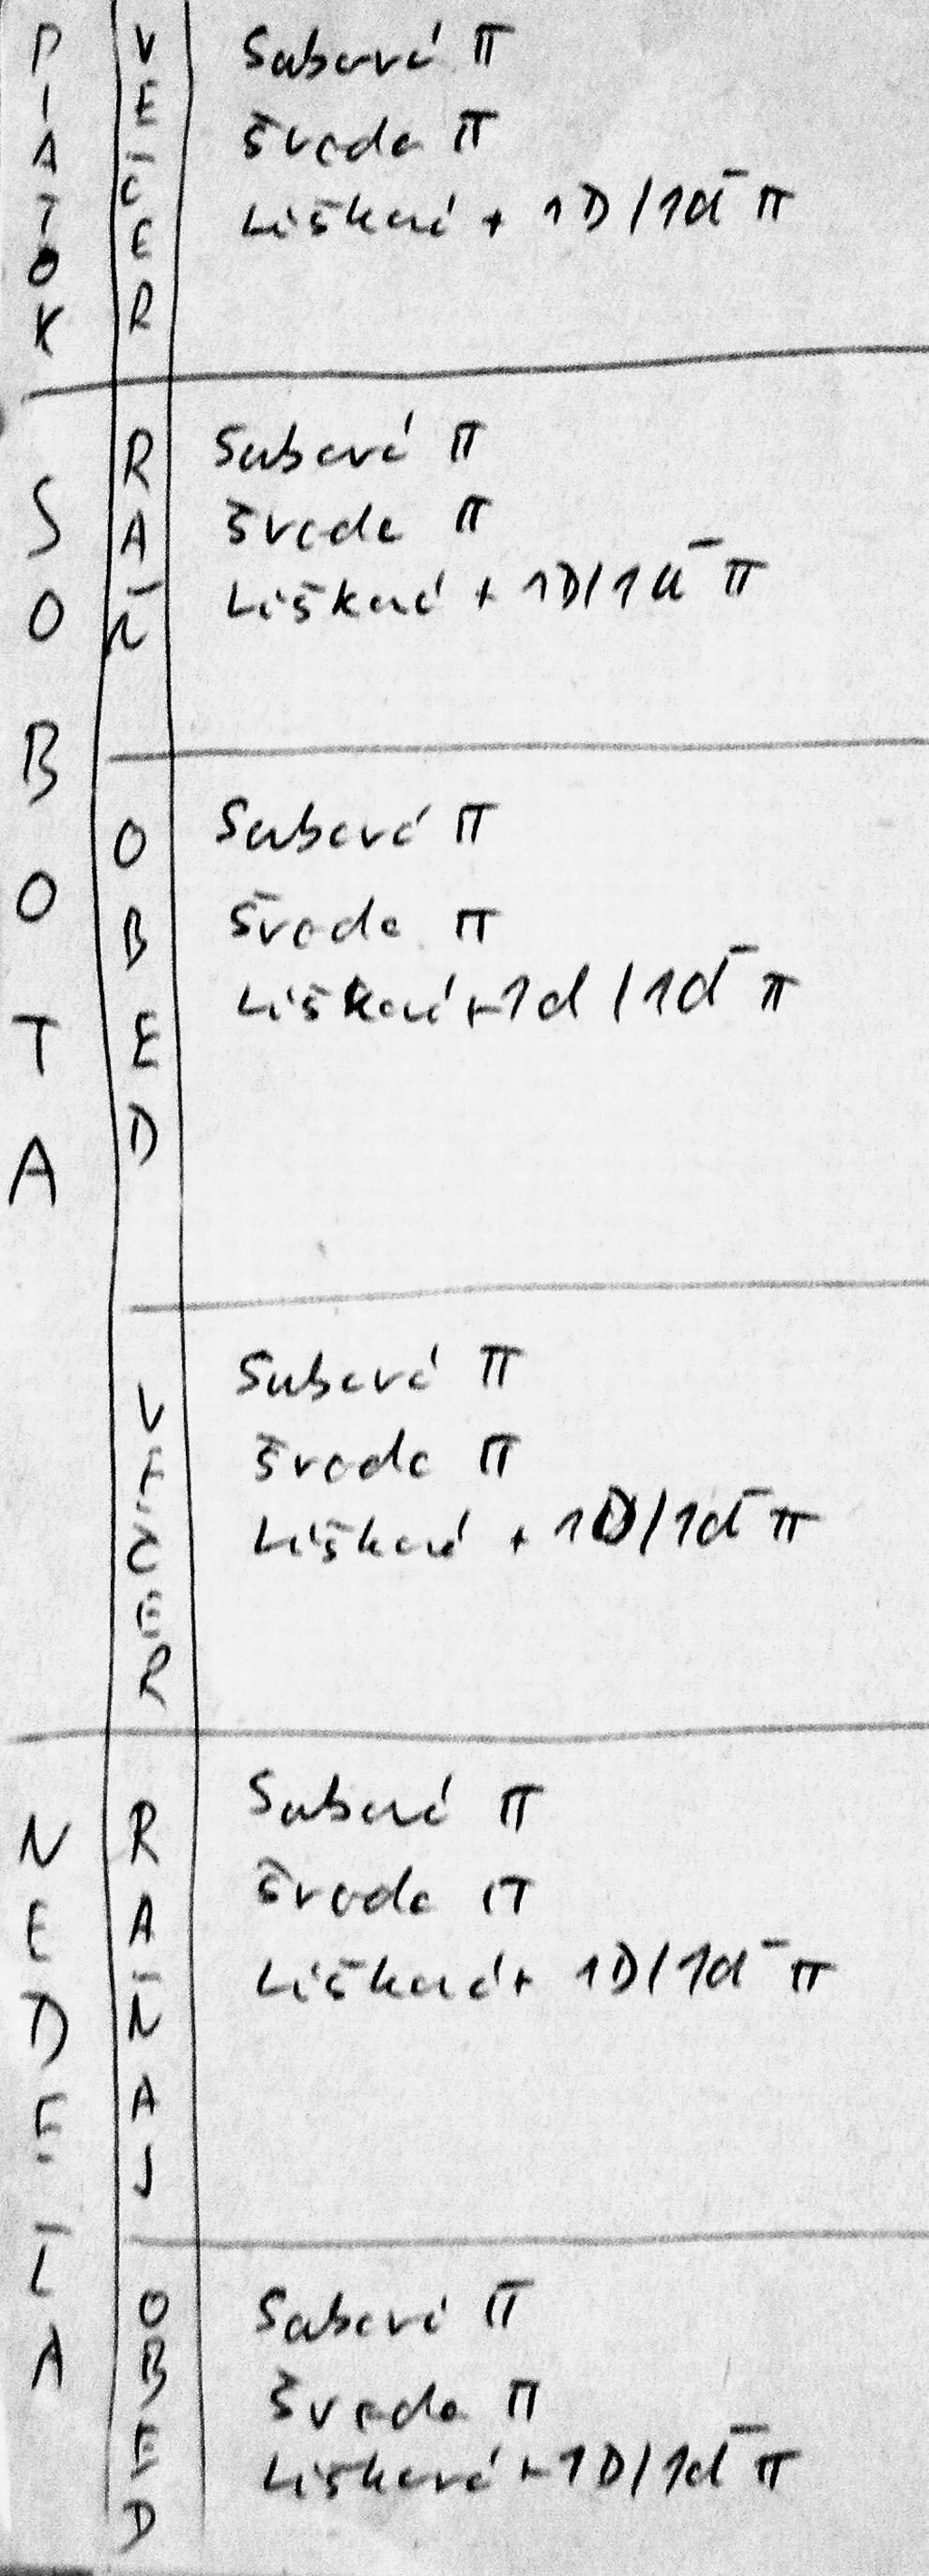 PIATOK
VEČER
Sabová π
Švoda π
Lišková + 1D/1d̄ π
SOBOTA
RAŇ
Sabová π
Švoda π
Lišková + 1D/1d̄ π
OBED
Sabová π
Švoda π
Lišková + 1d/1d̄ π
VEČER
Sabová π
Švoda π
Lišková + 1D/1d̄ π
NEDEĽA
RAŇAJ
Sabová π
Švoda π
Lišková + 1D/1d̄ π
OBED
Sabová π
Švoda π
Lišková + 1D/1d̄ π